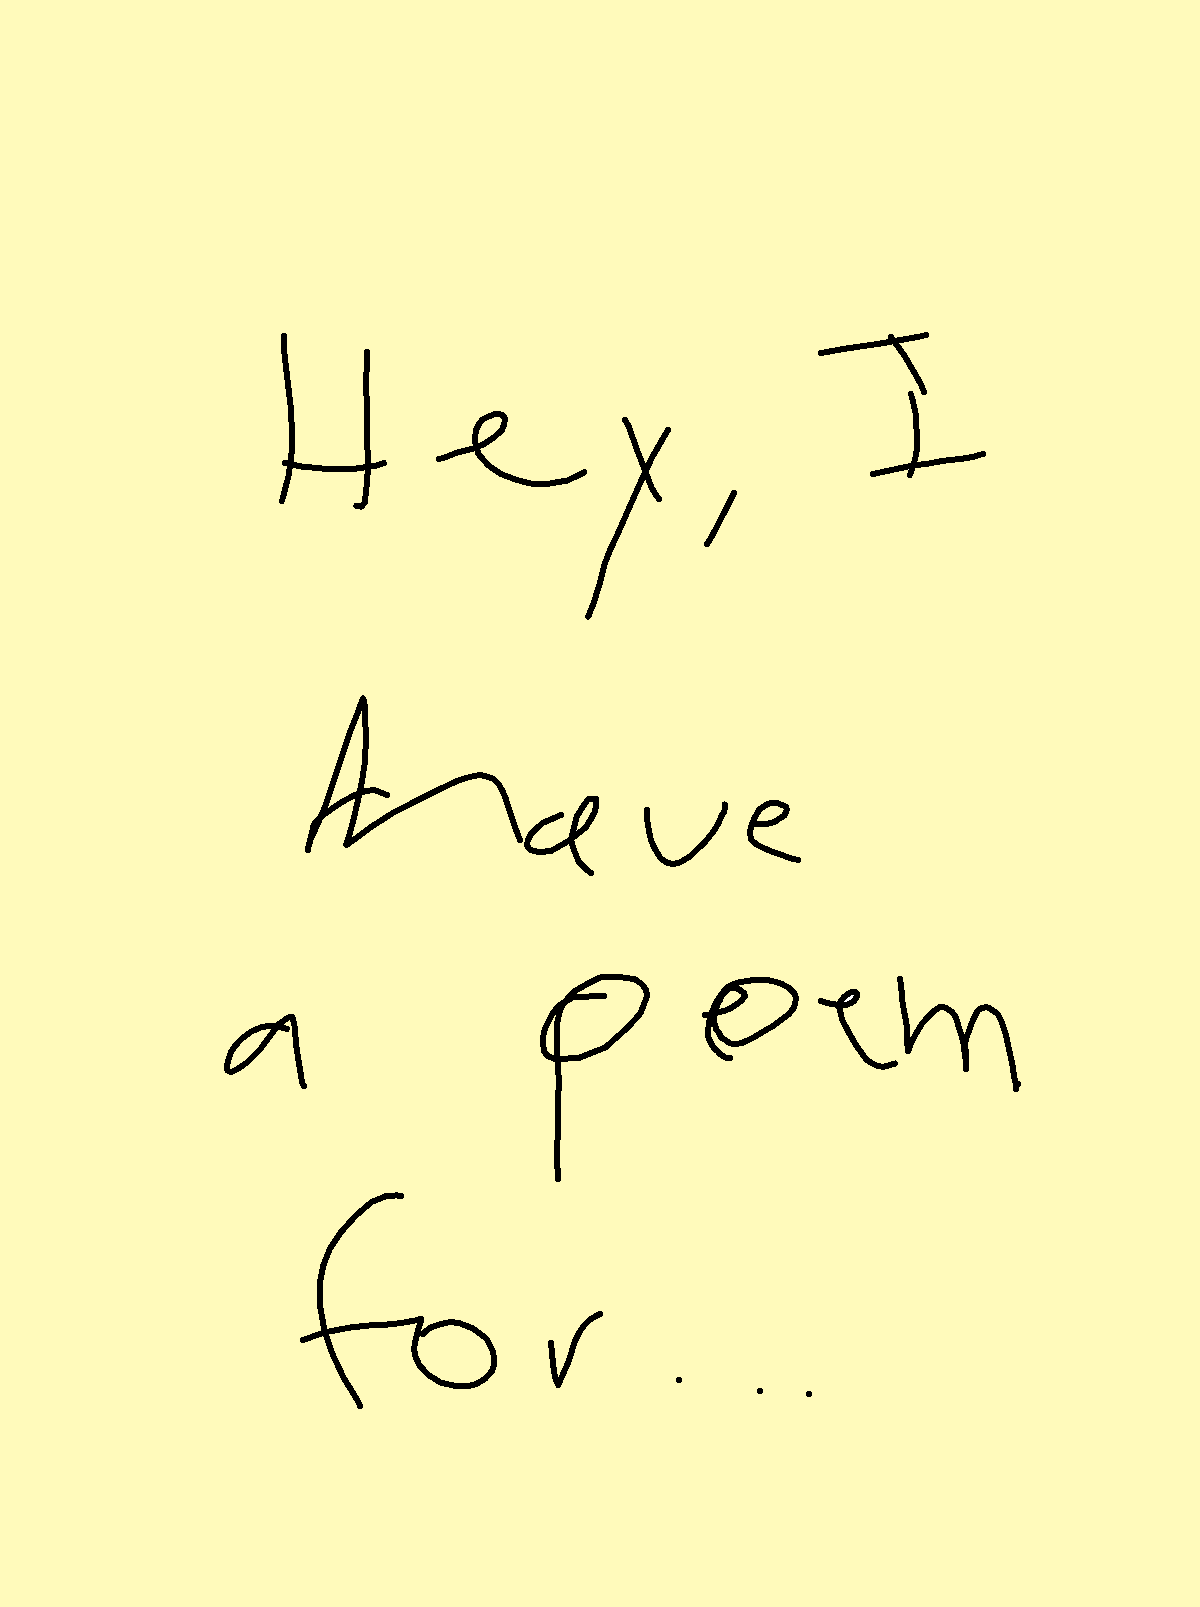 Hey, I
have
a poem
for...